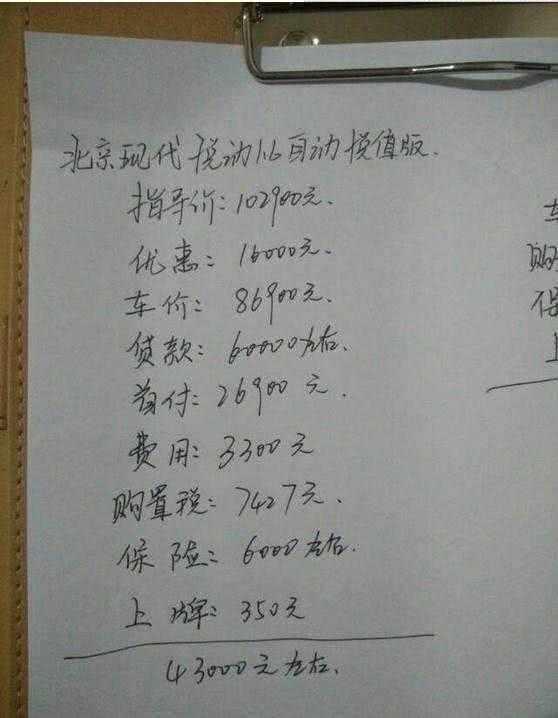 北京现代悦动1.6自动超值版.
指导价: 102900元.
优惠: 16000元.
车价: 86900元.
贷款: 60000左右.
首付: 26900元.
费用: 3300元
购置税: 7427元.
保险: 6000左右.
上牌: 350元
43000元左右.
车
购
保
上